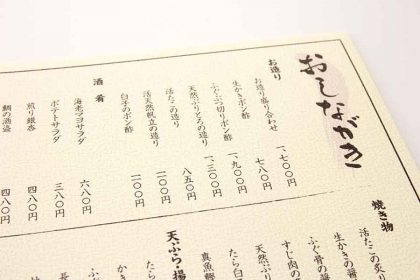 おしながき
お造り
お造り盛り合わせ 一、七〇〇円
生かきポン酢 七八〇円
ふぐぶつ切りポン酢 一、九〇〇円
天然ぶりとろの造り 一、三〇〇円
活たこの造り 八五〇円
活天然帆立の造り
白子のポン酢
酒肴
海老マヨサラダ 六八〇円
ポテトサラダ 三八〇円
煎り銀杏 四八〇円
鯛の酒盗 四八〇円
焼き物
活たこの炙り
生かきの醤
ふぐ骨の醤
すじ肉の
天然ぶ
たら白
真魚鰹
天ぷら・揚
たら白
かき